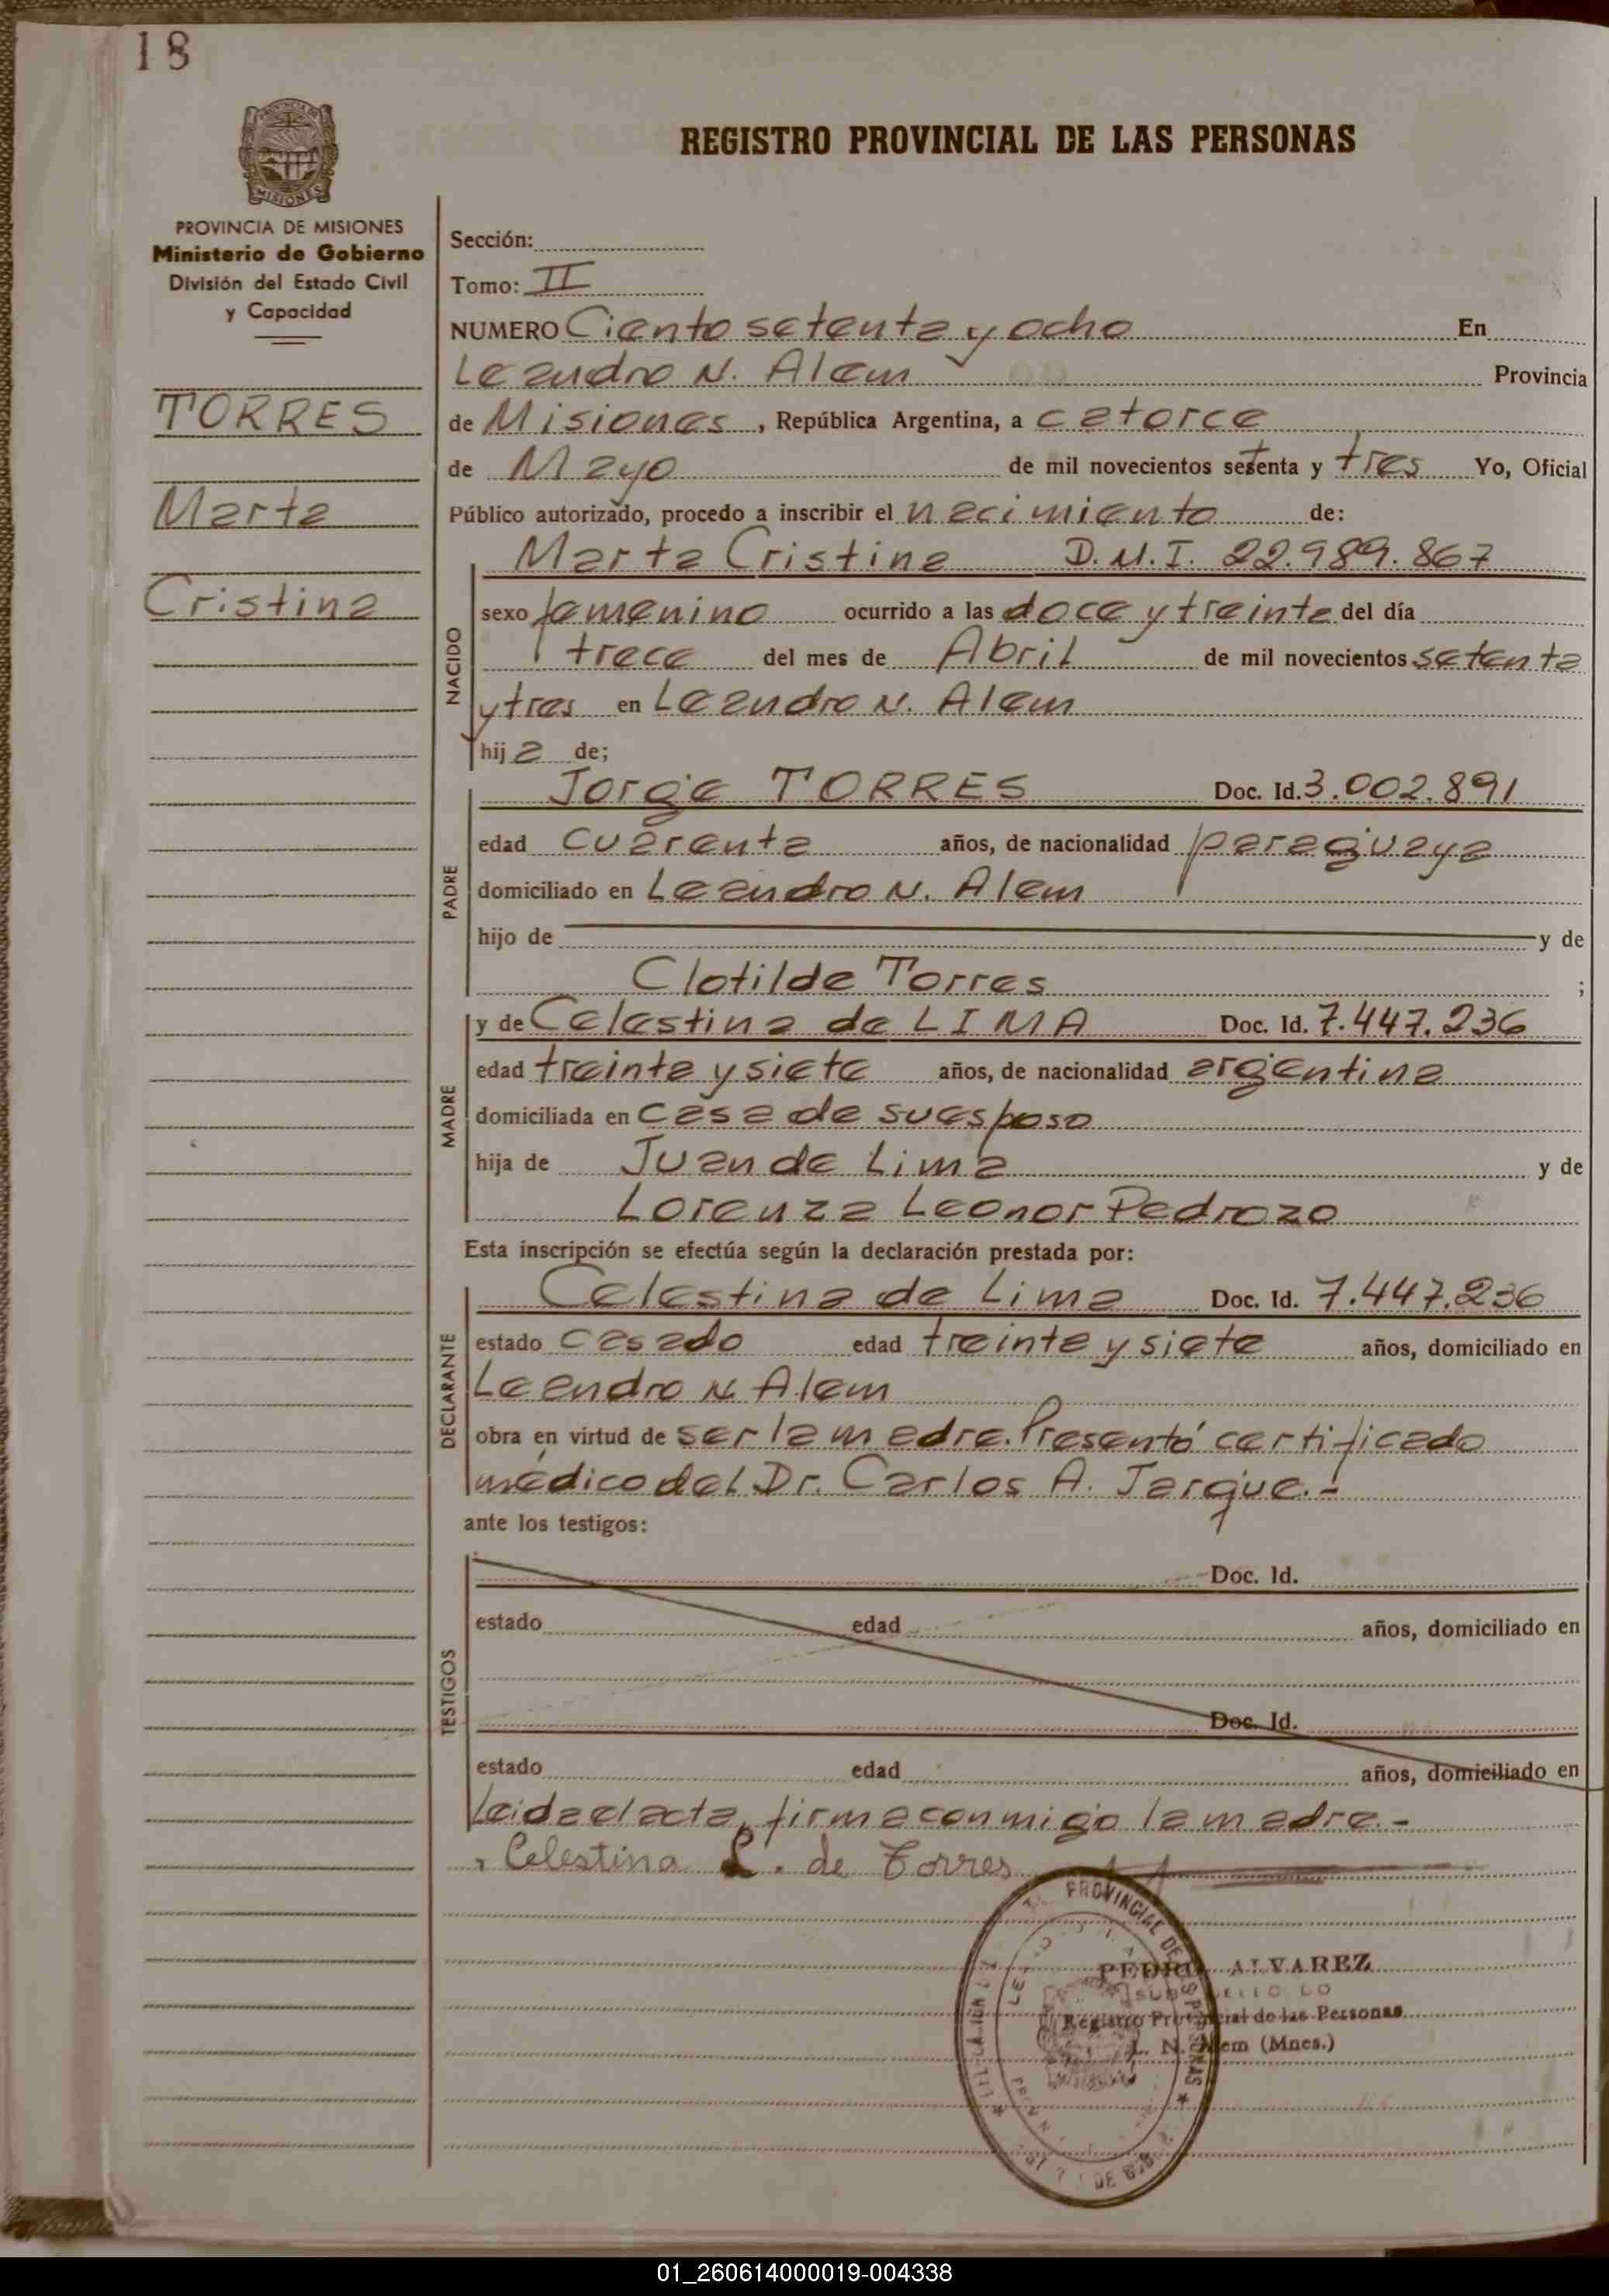 18
REGISTRO PROVINCIAL DE LAS PERSONAS
PROVINCIA DE MISIONES
Ministerio de Gobierno
División del Estado Civil
y Capacidad
TORRES
Marta
Cristina
Sección:
Tomo: II
NUMERO Ciento setenta y ocho En
Leandro N. Alem Provincia
de Misiones, República Argentina, a catorce
de Mayo de mil novecientos setenta y tres Yo, Oficial
Público autorizado, procedo a inscribir el nacimiento de:
Marta Cristina D.N.I. 22.989.867
NACIDO
sexo femenino ocurrido a las doce y treinta del día
trece del mes de Abril de mil novecientos setenta
y tres en Leandro N. Alem
hija de;
PADRE
Jorge TORRES Doc. Id. 3.002.891
edad cuarenta años, de nacionalidad paraguaya
domiciliado en Leandro N. Alem
hijo de y de
Clotilde Torres ;
MADRE
y de Celestina de LIMA Doc. Id. 7.447.236
edad treinta y siete años, de nacionalidad argentina
domiciliada en casa de su esposo
hija de Juan de Lima y de
Lorenza Leonor Pedrozo
Esta inscripción se efectúa según la declaración prestada por:
DECLARANTE
Celestina de Lima Doc. Id. 7.447.236
estado casado edad treinta y siete años, domiciliado en
Leandro N Alem
obra en virtud de ser la madre. Presentó certificado
médico del Dr. Carlos A. Jarque.-
ante los testigos:
TESTIGOS
Doc. Id.
estado edad años, domiciliado en
Doc. Id.
estado edad años, domiciliado en
Leida el acta, firma conmigo la madre.-
Celestina L. de Torres
PROVINCIAL DE
PEDRO ALVAREZ
Registro Provincial de las Personas
L. N. Alem (Mnes.)
01_260614000019-004338